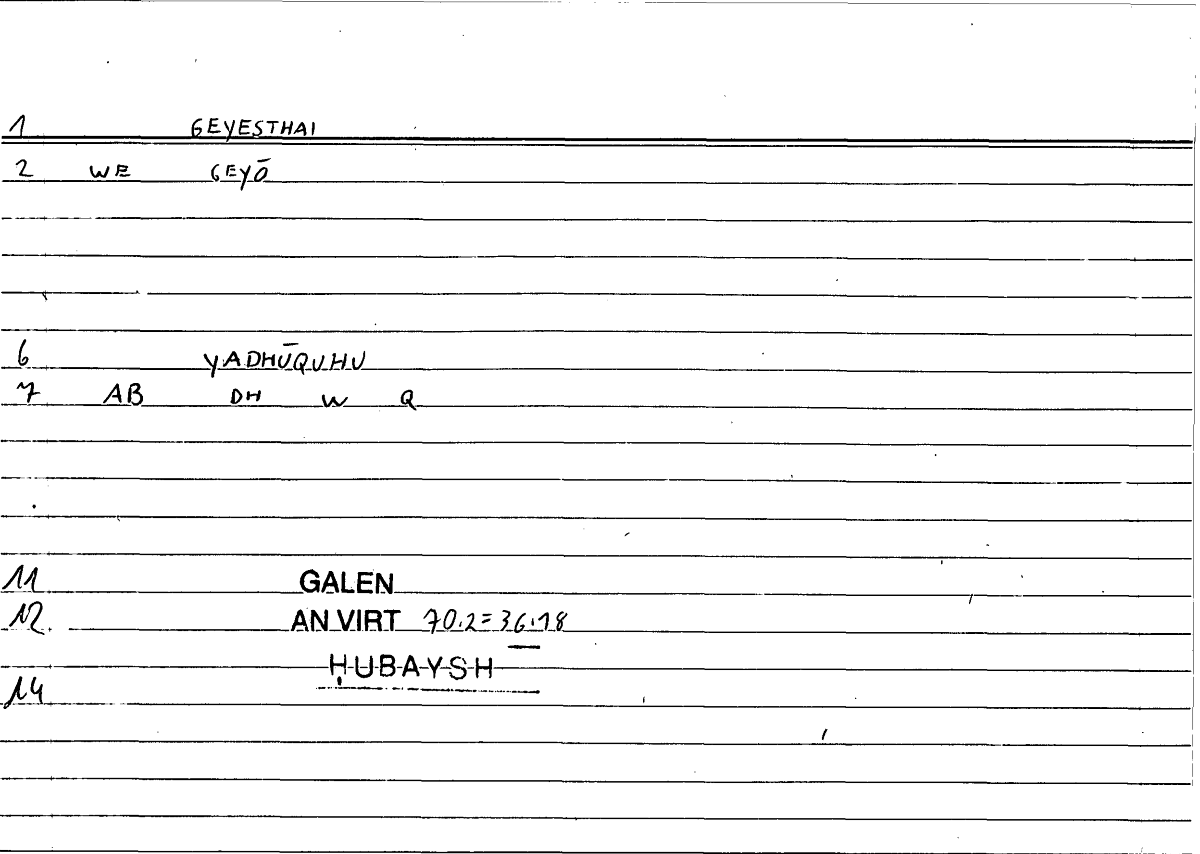 1 GEYESTHAI
2 WE GEYŌ
6 YADHŪQUHU
7 AB DH W Q
11 GALEN
12. AN VIRT 70.2=36.18
ḤUBAYSH
14